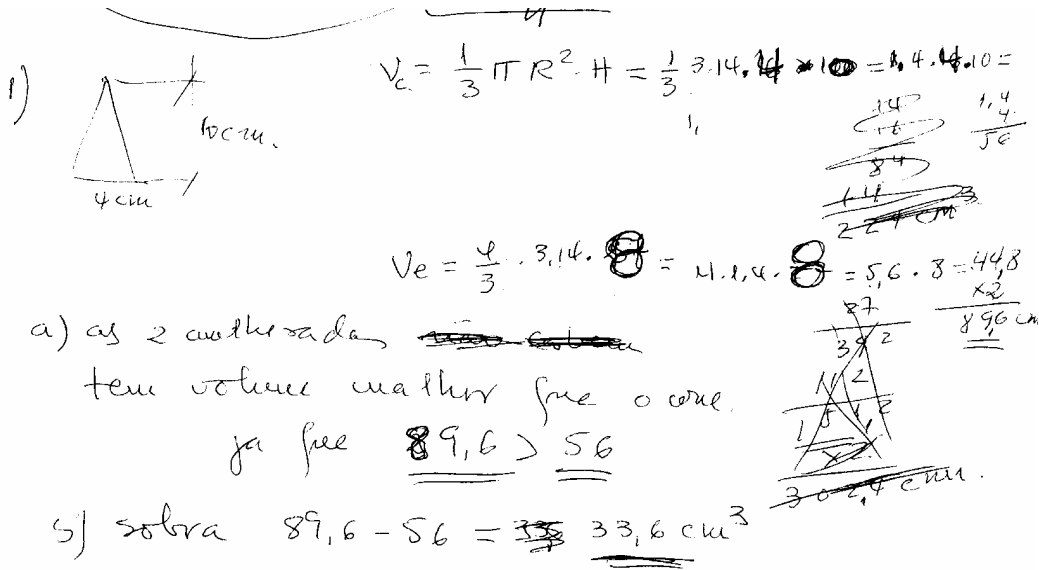 1)
10cm.
4cm
Vc = 1/3 π R². H = 1/3 3.14. 4 × 10 = 1,4.4.10 =
1,
1,4
4
56
Ve = 4/3 . 3,14. 8 = 4.1,4. 8 = 5,6 . 8 = 44,8
×2
89,6 cm
a) as 2
tem volume maior que o cone.
ja que 89,6 > 56
b) sobra 89,6 - 56 = 33,6 cm³